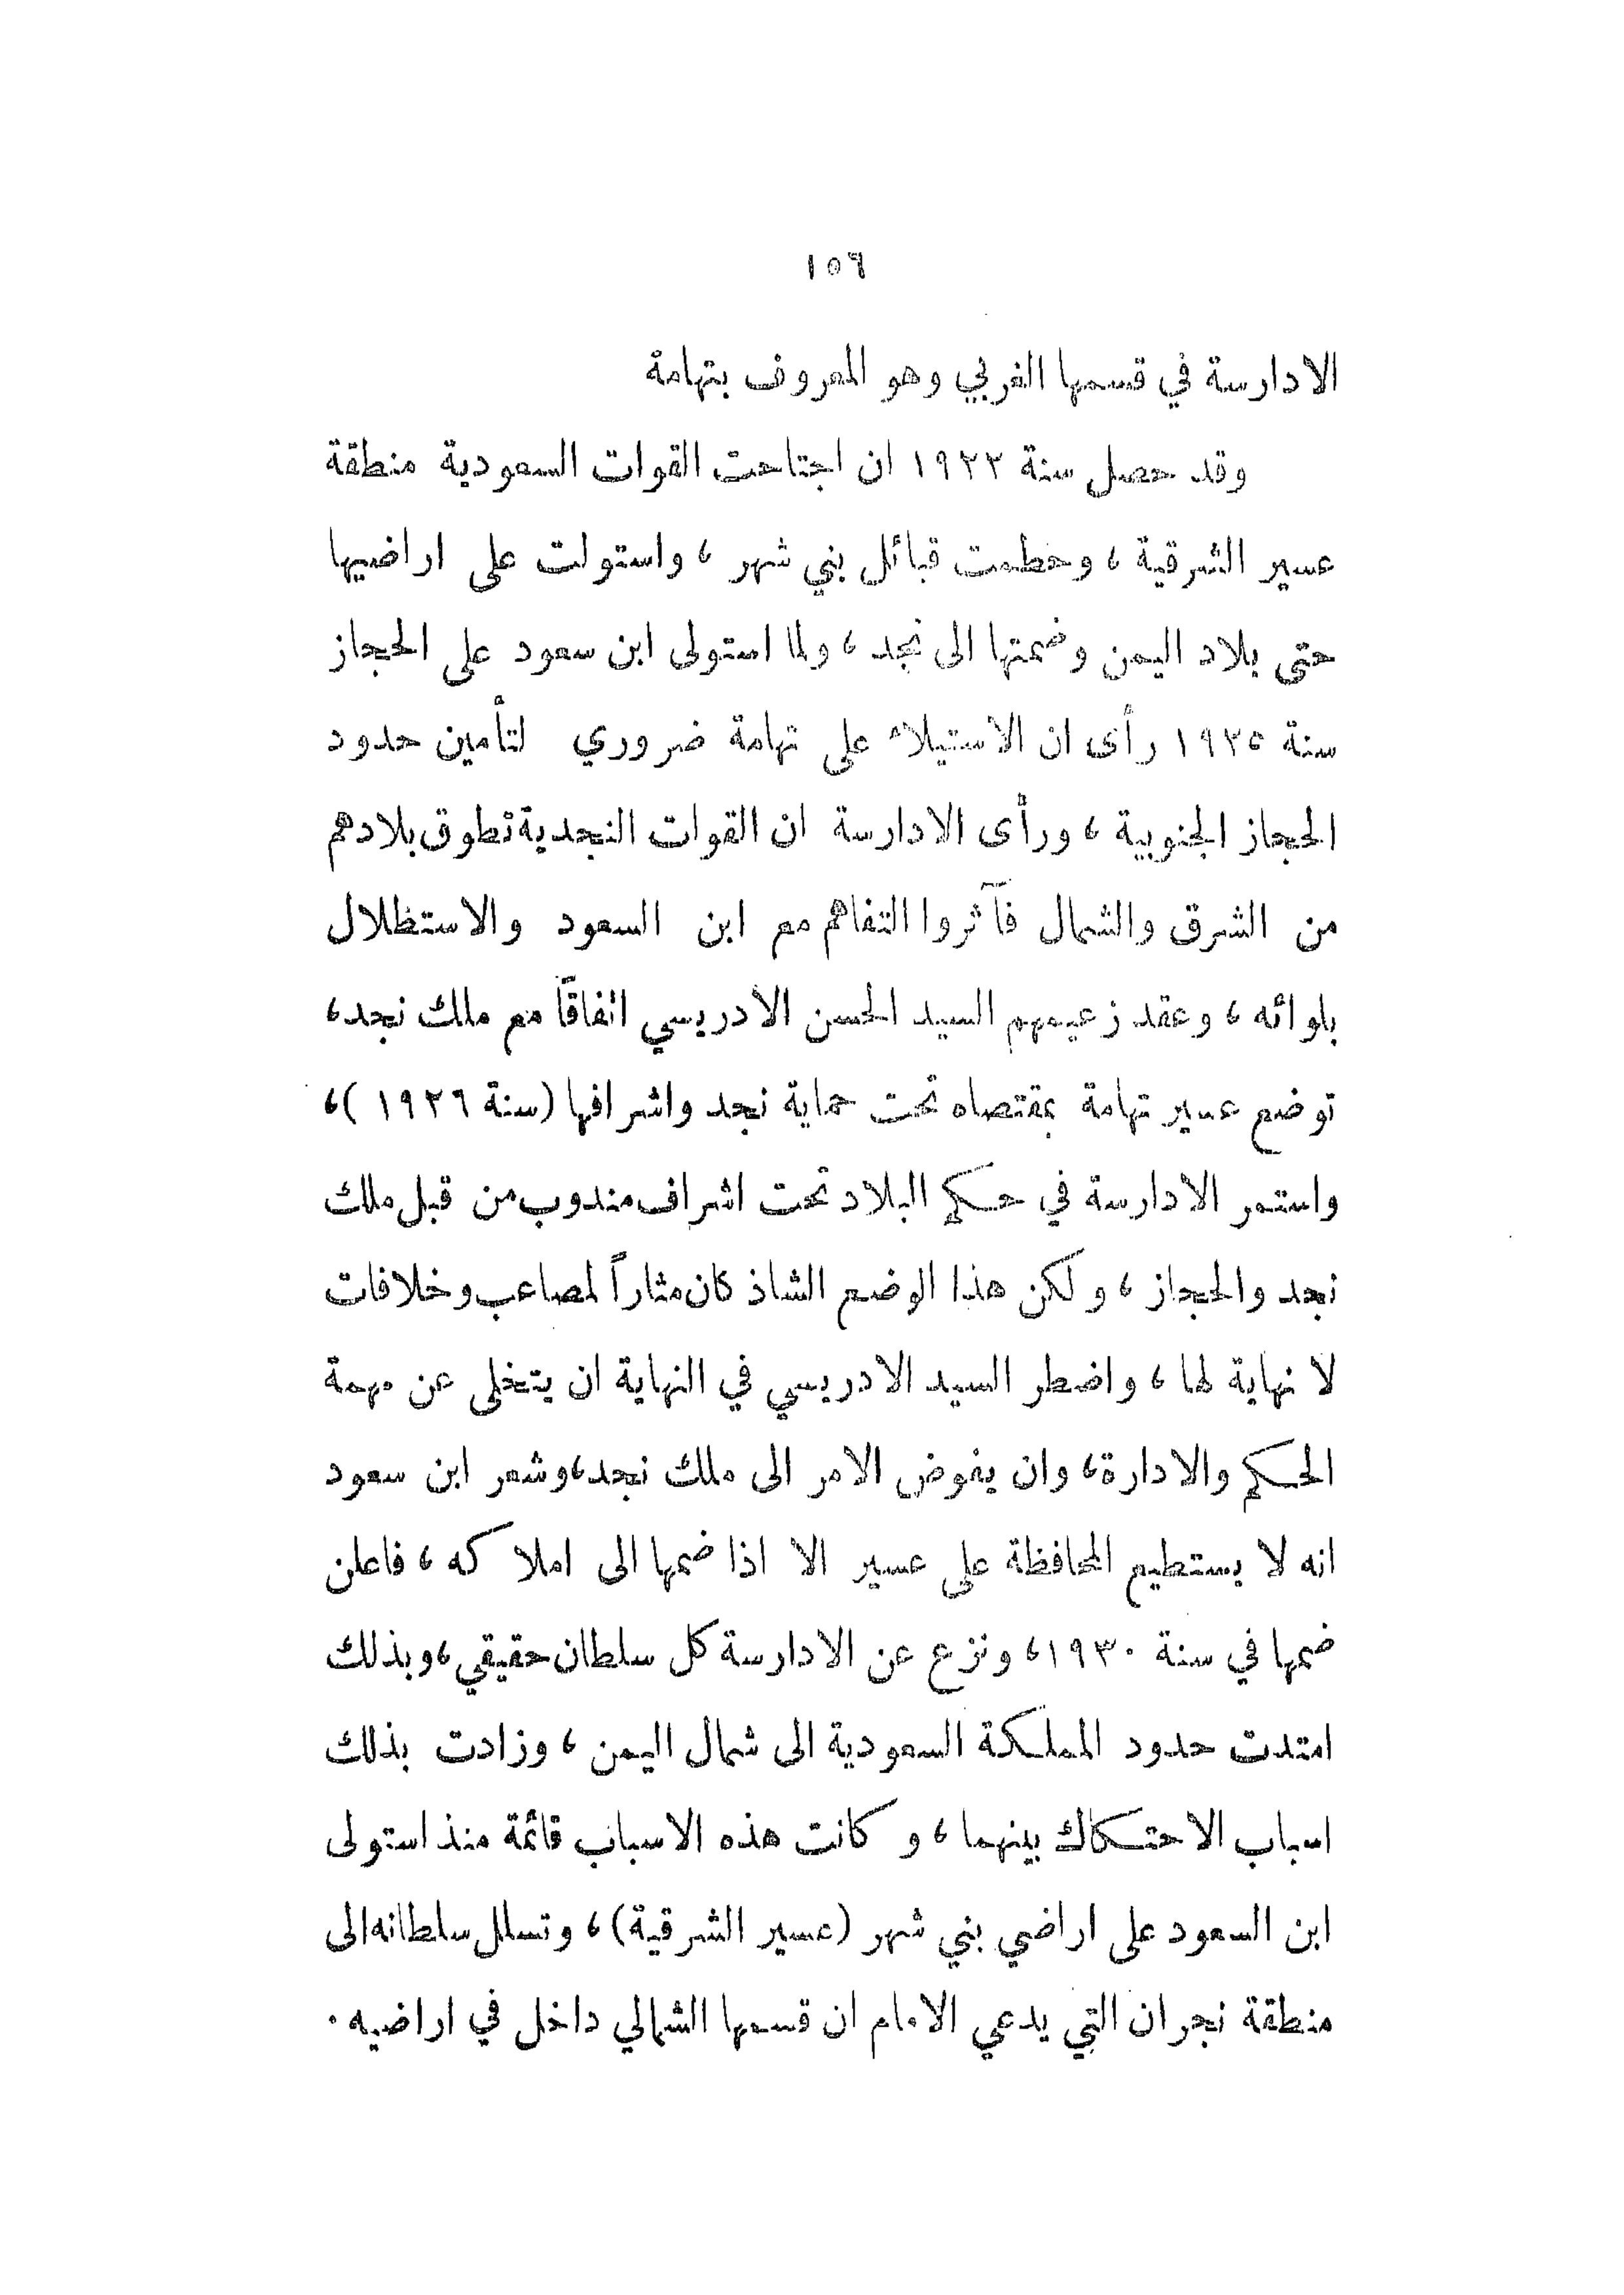 ١٥٦
الادارسة في قسمها الغربي وهو المعروف بتهامة
وقد حصل سنة ١٩٢٢ ان اجتاحت القوات السعودية منطقة
عسير الشرقية ، وحطمت قبائل بني شهر ، واستولت على اراضيها
حتى بلاد اليمن وضمتها الى نجد ، ولما استولى ابن سعود على الحجاز
سنة ١٩٢٥ رأى ان الاستيلاء على تهامة ضروري لتأمين حدود
الحجاز الجنوبية ، ورأى الادارسة ان القوات النجدية تطوق بلادهم
من الشرق والشمال فآثروا التفاهم مع ابن السعود والاستظلال
بلوائه ، وعقد زعيمهم السيد الحسن الادريسي اتفاقاً مع ملك نجد ،
توضع عسير تهامة بمقتضاه تحت حماية نجد واشرافها (سنة ١٩٢٦ ) ،
واستمر الادارسة في حكم البلاد تحت اشراف مندوب من قبل ملك
نجد والحجاز ، ولكن هذا الوضع الشاذ كان مثاراً لمصاعب وخلافات
لا نهاية لها ، واضطر السيد الادريسي في النهاية ان يتخلى عن مهمة
الحكم والادارة ، وان يفوض الامر الى ملك نجد ، وشعر ابن سعود
انه لا يستطيع المحافظة على عسير الا اذا ضمها الى املاكه ، فاعلن
ضمها في سنة ١٩٣٠ ، ونزع عن الادارسة كل سلطان حقيقي ، وبذلك
امتدت حدود المملكة السعودية الى شمال اليمن ، وزادت بذلك
اسباب الاحتكاك بينهما ، وكانت هذه الاسباب قائمة منذ استولى
ابن السعود على اراضي بني شهر (عسير الشرقية) ، وتسلل سلطانه الى
منطقة نجران التي يدعي الامام ان قسمها الشمالي داخل في اراضيه .